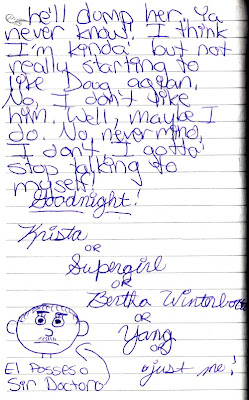 he'll dump her. Ya
never know! I think
I'm kinda' but not
really starting to
like Doug agian.
No, I don't like
him. Well, maybe I
do. No, never mind,
I don't. I gotta'
stop talking to
myself!
Goodnight!
Krista
OR
Supergirl
OR
Bertha
OR
Yang
OR
just me!
El Posseso
Sir Doctoro